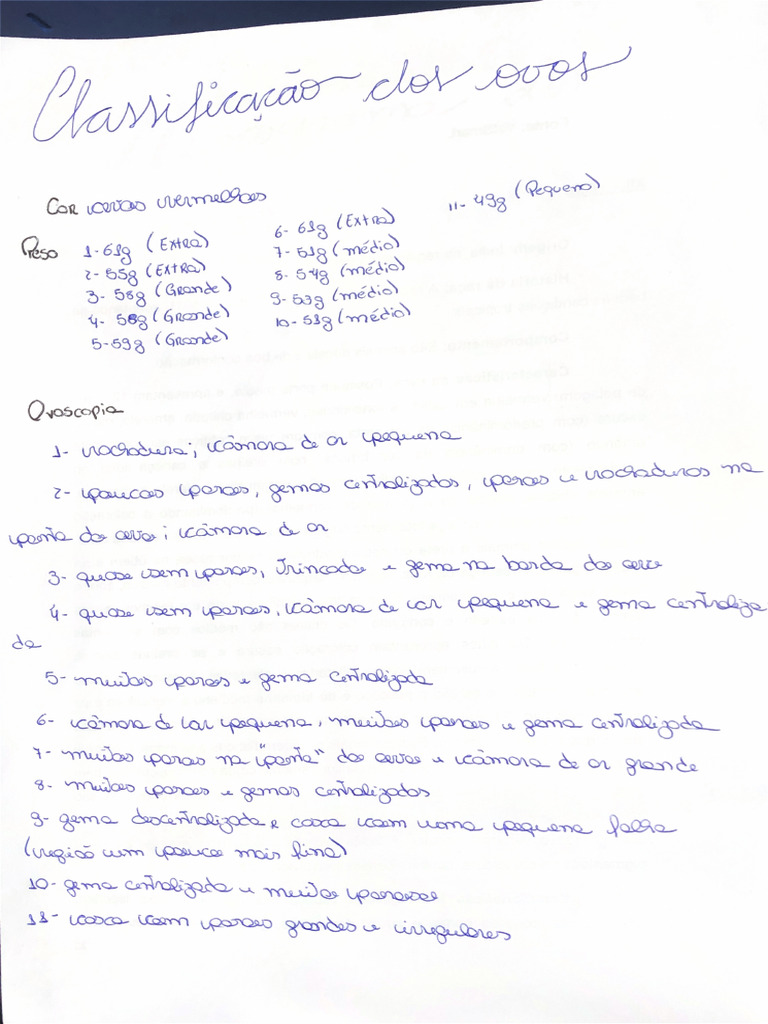 Classificação dos ovos
Cor ovos vermelhos
Peso
1- 61g (Extra)
2- 55g (Extra)
3- 58g (Grande)
4- 58g (Grande)
5- 59g (Grande)
6- 61g (Extra)
7- 51g (médio)
8- 54g (médio)
9- 53g (médio)
10- 51g (médio)
11- 49g (Pequeno)
Ovoscopia
1- rachadura; câmara de ar pequena
2- poucos poros, gemas centralizadas, poros e rachaduras na
ponta do ovo; câmara de ar
3- quase sem poros, trincado e gema na borda do ovo
4- quase sem poros, câmara de ar pequena e gema centraliza
da
5- muitos poros e gema centralizada
6- câmara de ar pequena, muitos poros e gema centralizada
7- muitos poros na "ponta" do ovo e câmara de ar grande
8- muitos poros e gemas centralizadas
9- gema descentralizada e casca com uma pequena falha
(região um pouco mais fina)
10- gema centralizada e muitos poros
11- casca com poros grandes e irregulares